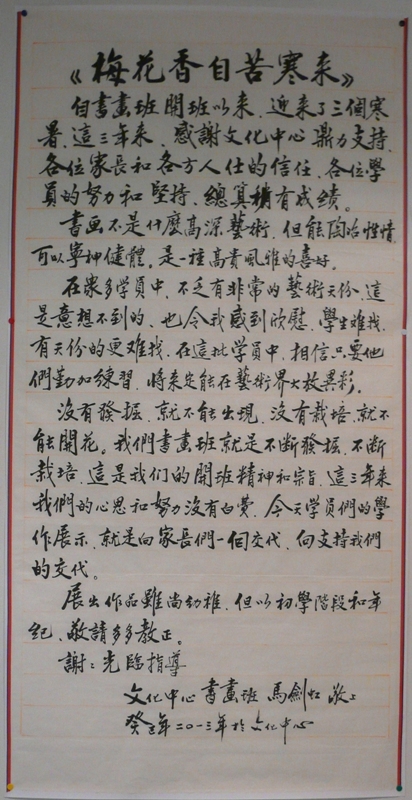 《梅花香自苦寒来》
自書畫班開班以来、迎来了三個寒
暑、這三年来、感謝文化中心鼎力支持、
各位家長和各方人仕的信任、各位學
員的努力和堅持、總算積有成績。
書画不是什麼高深藝術、但能陶冶性情、
可以寧神健體、是一種高貴風雅的喜好。
在眾多学員中、不乏有非常的藝術天份、這
是意想不到的、也令我感到欣慰、學生难找、
有天份的更难找、在這批学員中、相信只要他
們勤加練習、將来定能在藝術界大放異彩。
没有發掘、就不能出現、没有栽培、就不
能開花。我們書畫班就是不断發掘、不断
栽培、這是我们的開班精神和宗旨、這三年来
我們的心思和努力没有白費、今天学員們的學
作展示、就是向家長們一個交代、向支持我們
的交代。
展出作品雖尚幼稚、但以初學階段和年
纪、敬請多多教正。
謝：光臨指導
文化中心書畫班 馬劍虹 敬上
癸巳年二〇一三年於文化中心